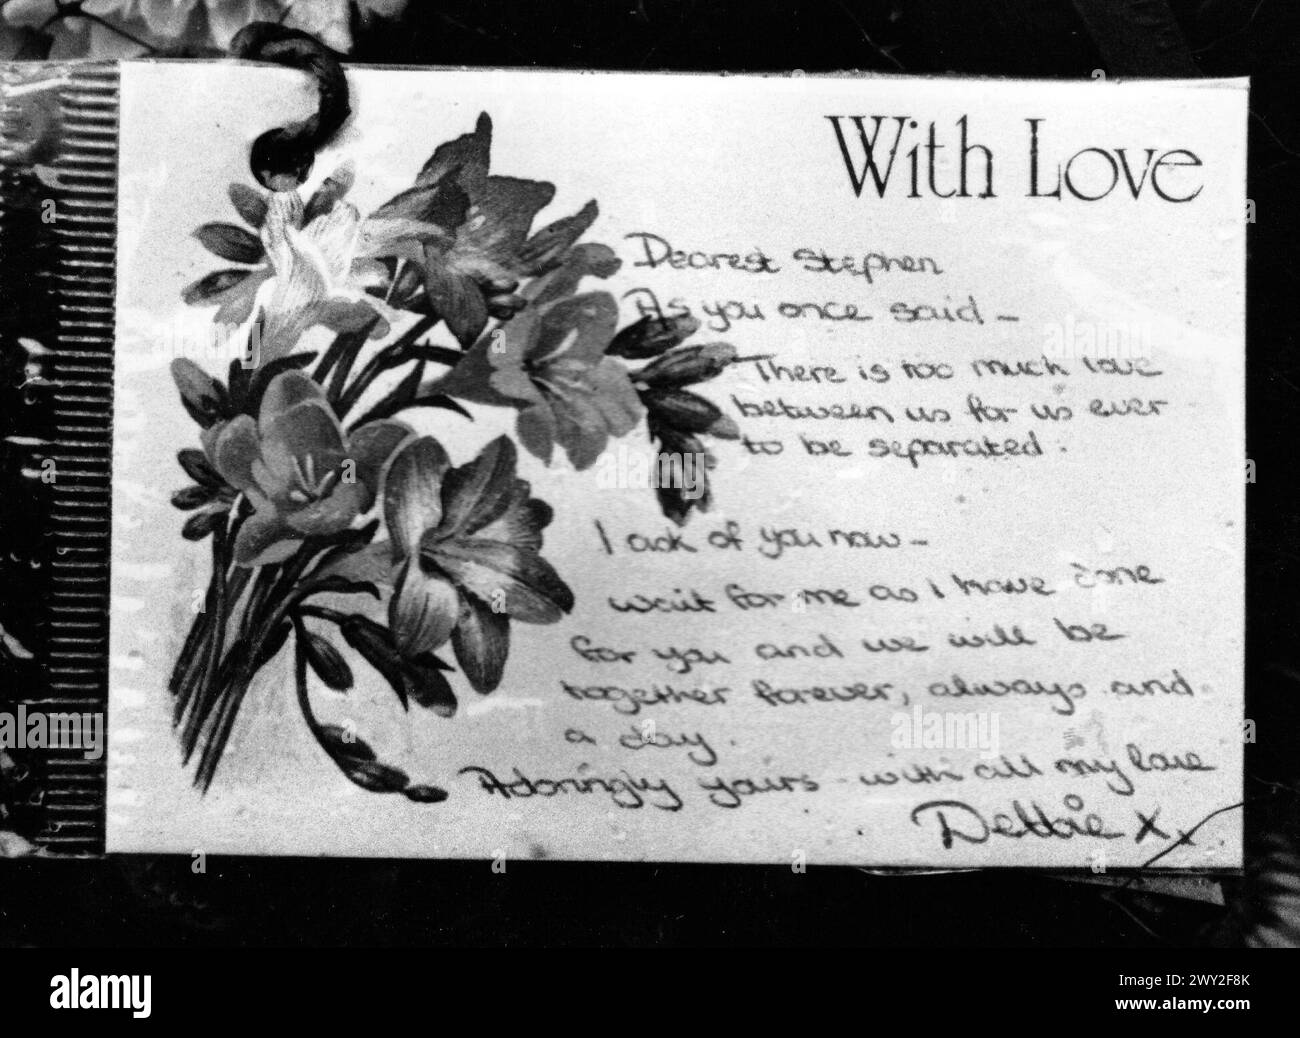 With Love
Dearest Stephen
As you once said -
There is too much love
between us for us ever
to be separated.
I ask of you now -
wait for me as I have done
for you and we will be
together forever, always and
a day.
Adoringly yours - with all my love
Debbie x x
alamy
Image ID: 2WY2F8K
www.alamy.com